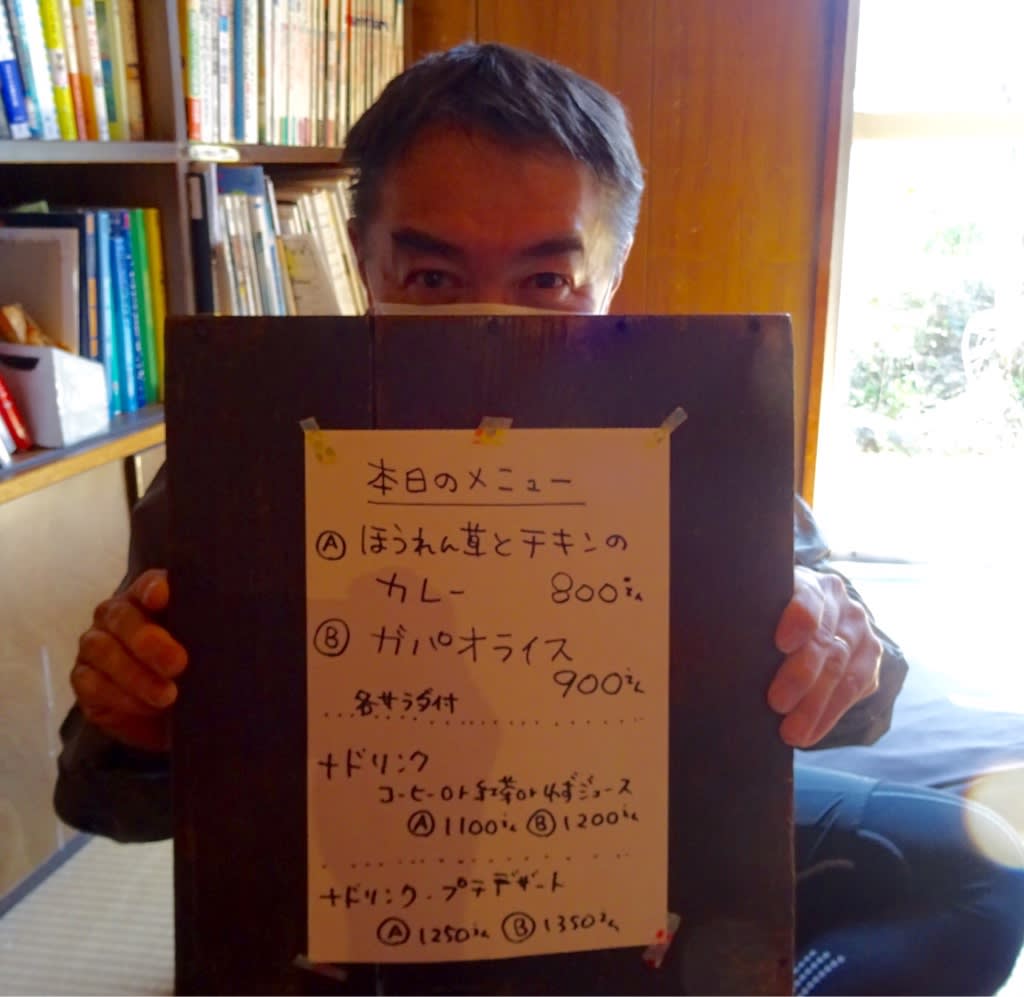 本日のメニュー
Ⓐ ほうれん草とチキンの
カレー 800えん
Ⓑ ガパオライス
900えん
各サラダ付
+ドリンク
コーヒーor紅茶orゆずジュース
Ⓐ1100えん Ⓑ1200えん
+ドリンク・プチデザート
Ⓐ1250えん Ⓑ1350えん